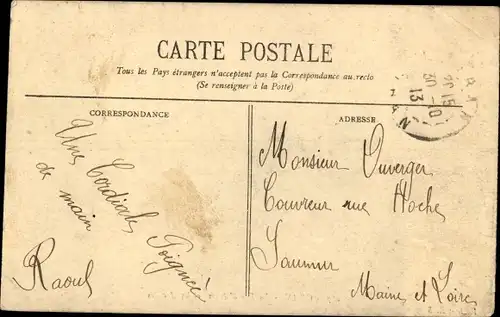 CARTE POSTALE
Tous les Pays étrangers n'acceptent pas la Correspondance au recto
(Se renseigner à la Poste)
CORRESPONDANCE
Une Cordiale Poignée
de main
Raoul
ADRESSE
Monsieur Duverger
Couvreur rue Hoche
Saumur
Maine et Loire